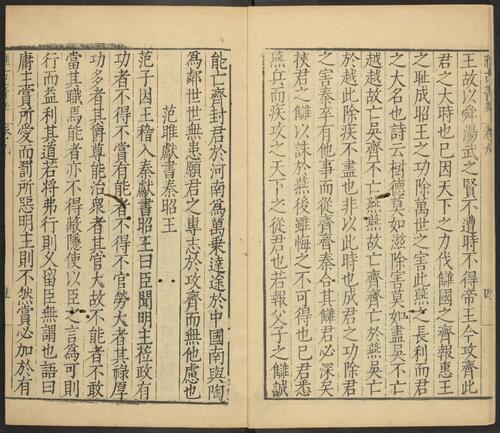 王故以舜湯武之賢不遭時不得帝王今攻齊此
君之大時也已因天下之力伐讎國之齊報惠王
之耻成昭王之功除萬世之害此燕之長利而君
之大名也詩云樹德莫如滋除害莫如盡吳不亡
越越故亡吳齊不亡燕燕故亡齊齊亡於燕吳亡
於越此除疾不盡也非以此時也成君之功除君
之害秦卒有他事而從齊齊秦合其讎君必深矣
挾君之讎以誅於燕後雖悔之不可得也已君悉
燕兵而疾攻之天下之從君也若報父子之讎誠
能亡齊封君於河南為萬乗達途於中國南與陶
為鄰世世無患願君之專志於攻齊而無他慮也
范雎獻書秦昭王
范子因王稽入秦獻書昭王曰臣聞明主莅政有
功者不得不賞有能者不得不官勞大者其祿厚
功多者其爵尊能治衆者其官大故不能者不敢
當其職焉能者亦不得蔽隱使以臣之言為可則
行而益利其道若將弗行則久留臣無謂也語曰
庸主賞所愛而罰所惡明主則不然賞必加於有